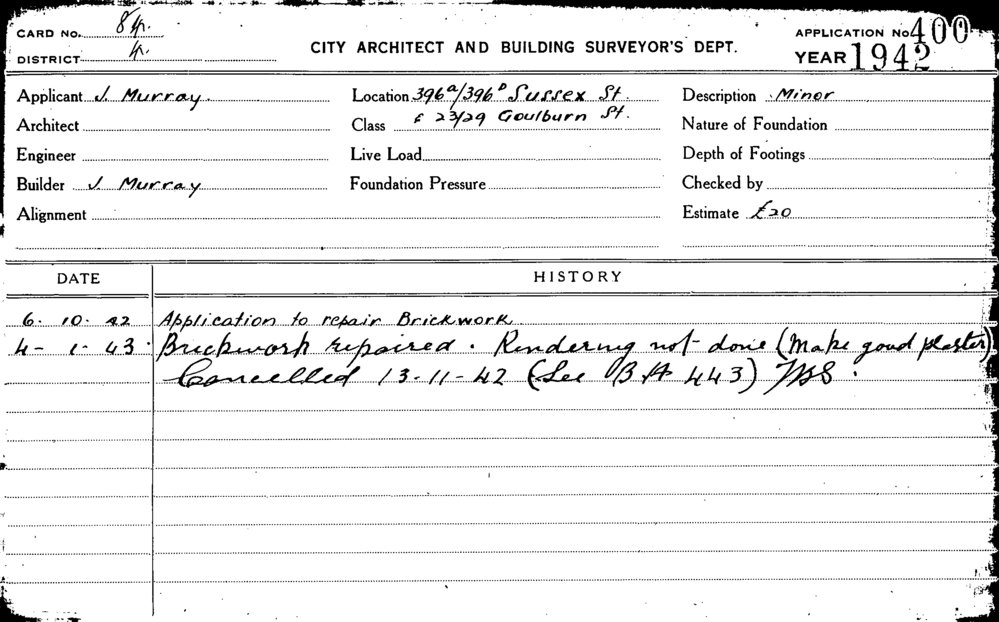 CARD No.
DISTRICT 4.
CITY ARCHITECT AND BUILDING SURVEYOR'S DEPT.
APPLICATION No 400
YEAR 1942
Applicant J. Murray
Location 396a/396b Sussex St.
Description Minor
Architect
Class & 23/29 Goulburn St.
Nature of Foundation
Engineer
Live Load
Depth of Footings
Builder J. Murray
Foundation Pressure
Checked by
Alignment
Estimate £20
DATE
HISTORY
6. 10. 42 Application to repair Brickwork
4- 1- 43. Brickwork repaired. Rendering not done (Make good plaster)
Cancelled 13-11-42 (See BA 443)